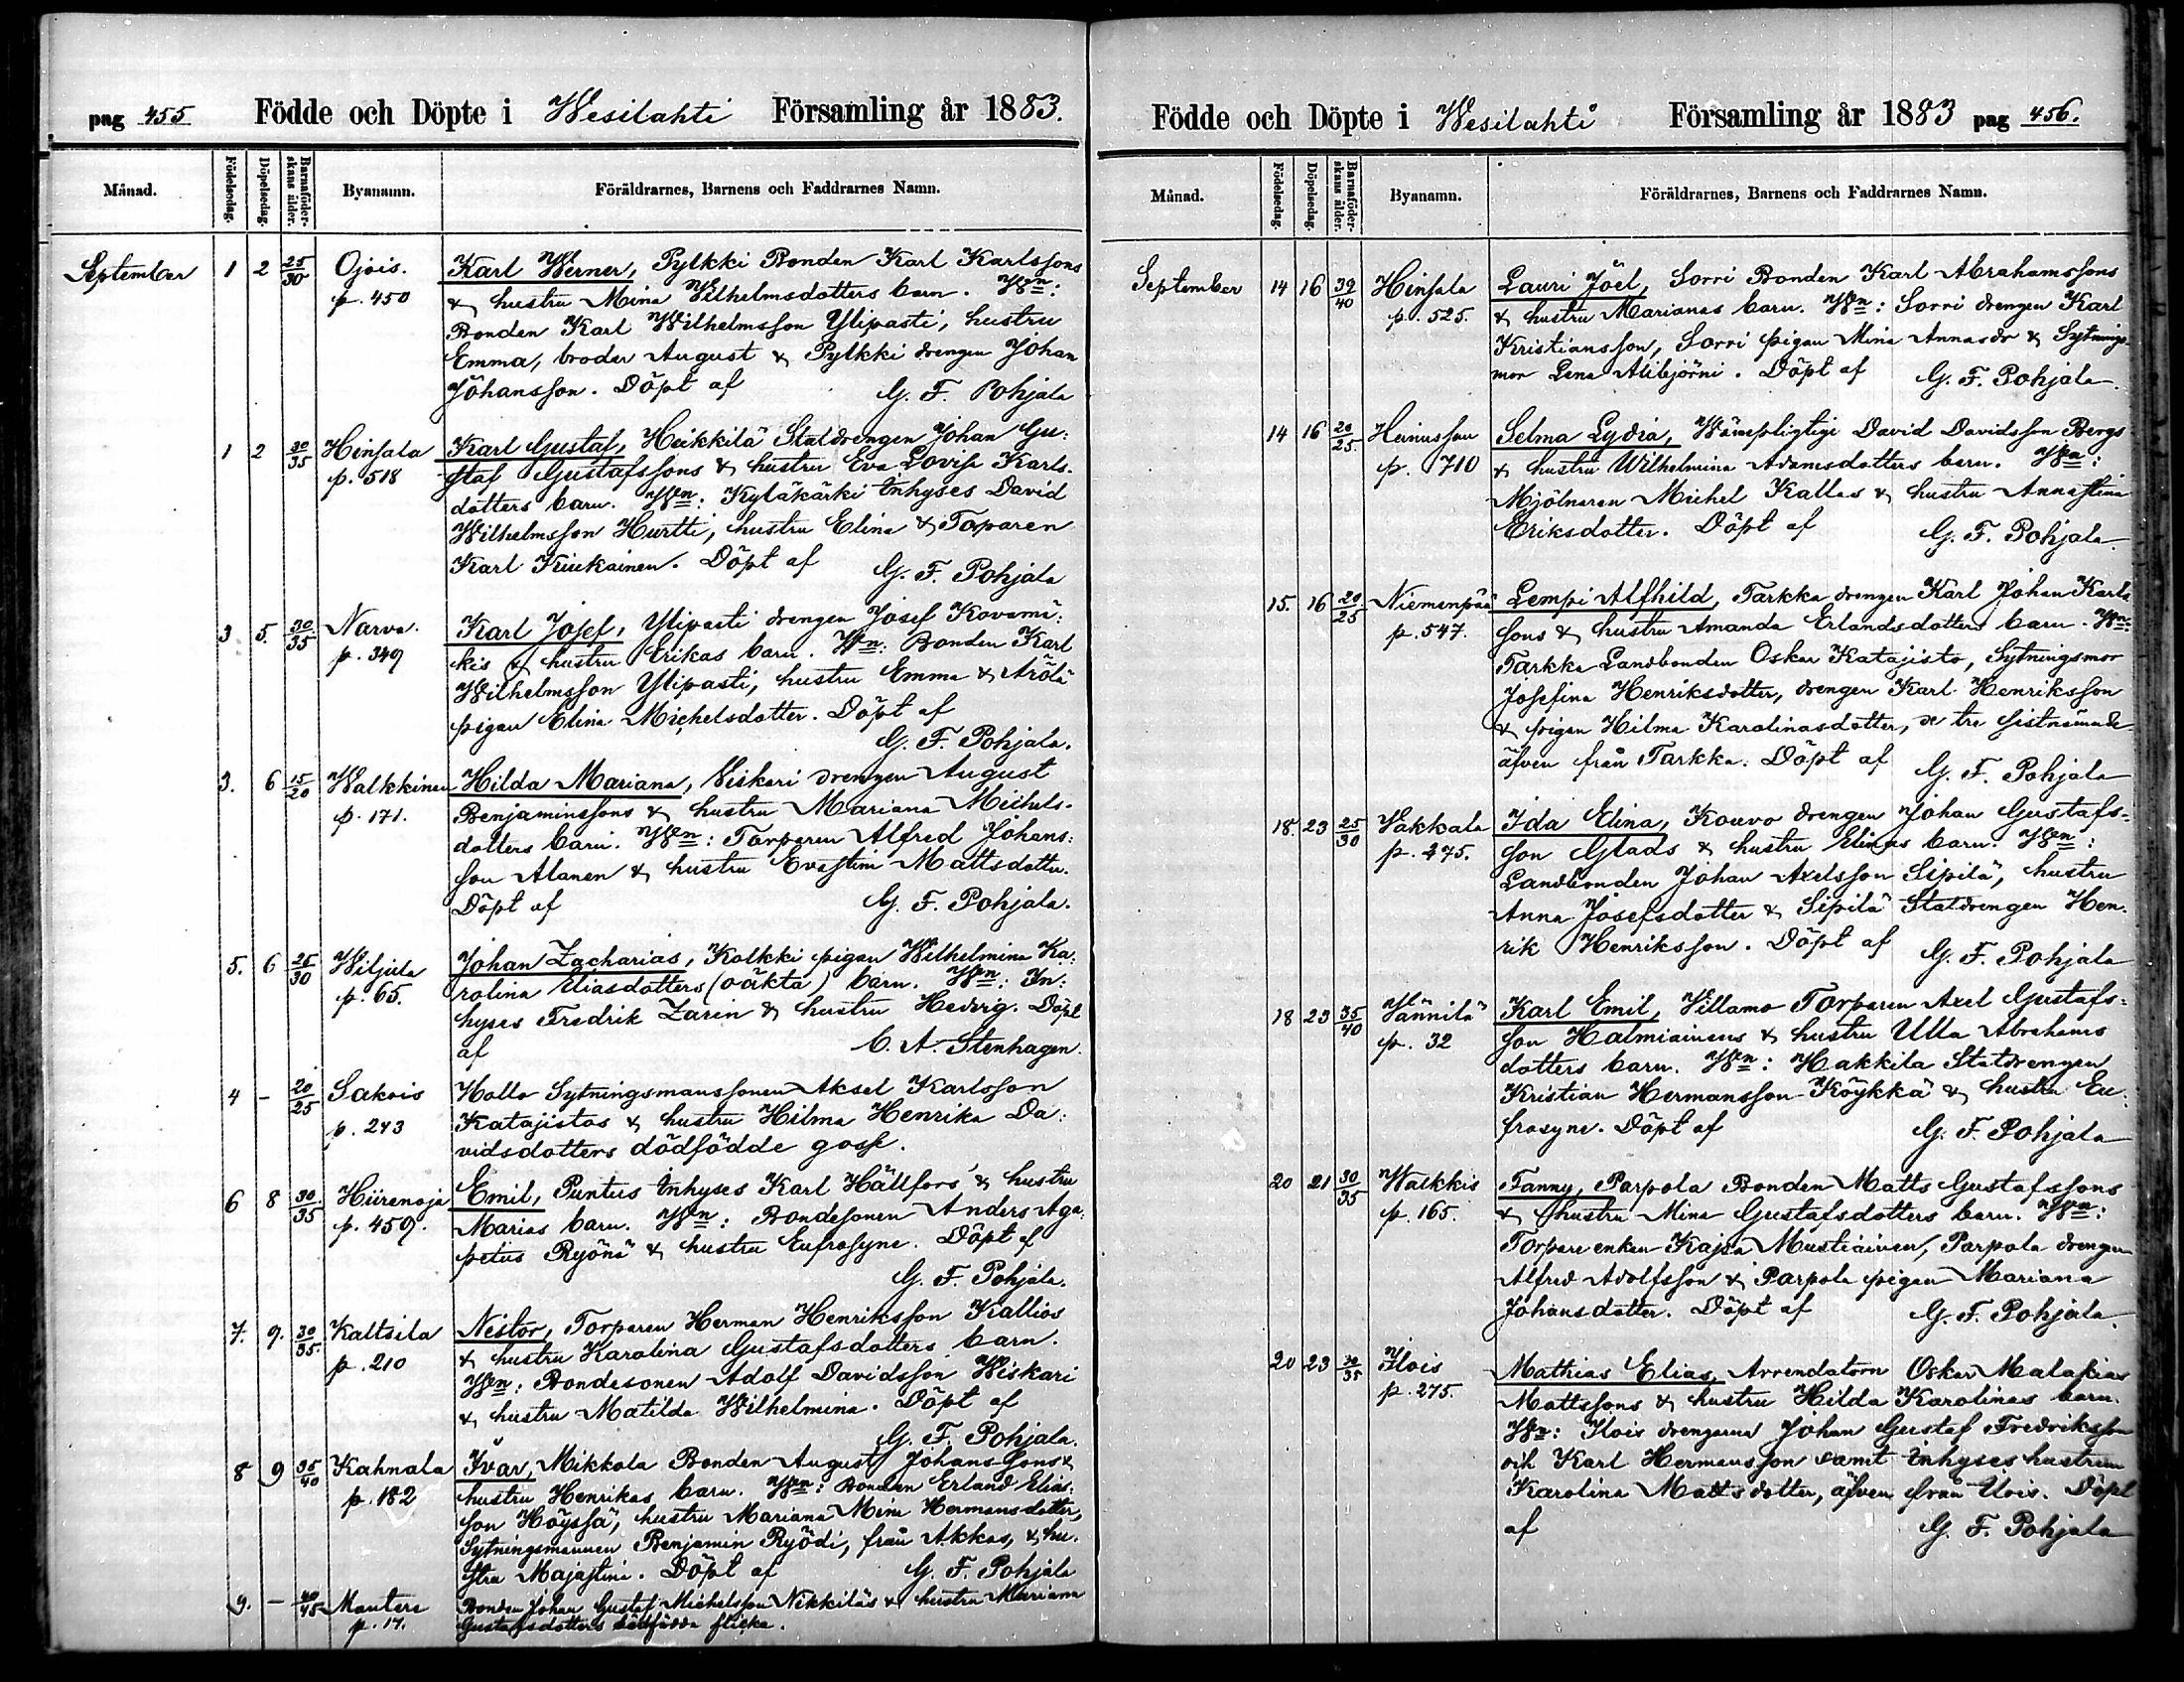 pag 455 Födde och Döpte i Wesilahti Församling år 1883.
Månad. Födelsedag. Döpelsedag. Barnaföderskans ålder. Byanamn. Föräldrarnes, Barnens och Faddrarnes Namn.
September 1 2 25/30 Ojois. Karl Werner, Pylkki Bonden Karl Karlssons
p. 450 & hustru Mina Wilhelmsdotters barn. Wn:
Bonden Karl Wilhelmsson Ylipasti, hustru
Emma, broder August & Pylkki drengen Johan
Johansson. Döpt af G. F. Pohjala
1 2 30/35 Hinsala Karl Gustaf, Heikkilä Statdrengen Johan Gu:
p. 518 staf Gustafssons & hustru Eva Lovisa Karls-
dotters barn. Wn: Kyläkärki Inhyses David
Wilhelmsson Hurtti, hustru Elina & Torparen
Karl Kiukainen. Döpt af G. F. Pohjala
3 5. 30/35 Narva. Karl Josef, Ylipasti drengen Josef Kovamä:
p. 349 kis & hustru Erikas barn. Wn: Bonden Karl
Wilhelmsson Ylipasti, hustru Emma & Arölä
pigan Elina Michelsdotter. Döpt af
G. F. Pohjala.
3. 6 15/20 Walkkinen Hilda Mariana, Viskari drengen August
p. 171. Benjaminssons & hustru Mariana Michels-
dotters barn. Wn: Torparen Alfred Johans:
son Alanen & hustru Evastina Mattsdotter.
Döpt af G. F. Pohjala.
5. 6 25/30 Wiljala Johan Zacharias, Kolkki pigan Wilhelmina Ka:
p. 65. rolina Eliasdotters (oäkta) barn. Wn: In:
hyses Fredrik Zarin & hustru Hedvig. Döpt
af C. A. Stenhagen.
4 - 20/25 Sakois Hollo Sytningsmanssonen Aksel Karlsson
p. 243 Katajistos & hustru Hilma Henrika Da:
vidsdotters dödfödde gosse.
6 8 30/35 Hiirenoja Emil, Puntus Inhyses Karl Hällfors & hustru
p. 459. Marias barn. Wn: Bondesonen Anders Aga:
petus Ryönä & hustru Eufrosyne. Döpt af
G. F. Pohjala.
7. 9. 30/35. Kaltsila Nestor, Torparen Herman Henriksson Kallios
p. 210 & hustru Karolina Gustafsdotters barn.
Wn: Bondesonen Adolf Davidsson Wiskari
& hustru Matilda Wilhelmina. Döpt af
G. F. Pohjala.
8 9 35/40 Kahnala Ivar, Mikkola Bonden August Johanssons &
p. 182 hustru Henrikas barn. Wn: Bonden Erland Elias-
son Höyssä, hustru Mariana Mina Hermansdotter,
Sytningsmannen Benjamin Ryödi, från Akkas, & hu-
stru Majastina. Döpt af G. F. Pohjala
9. - 40/45 Mantere Bonden Johan Gustaf Michelsson Nikkiläs & hustru Mariana
p. 17. Gustafsdotters dödfödda flicka.
Födde och Döpte i Wesilahti Församling år 1883 pag 456.
Månad. Födelsedag. Döpelsedag. Barnaföderskans ålder. Byanamn. Föräldrarnes, Barnens och Faddrarnes Namn.
September 14 16 39/40 Hinsala Lauri Joel, Sorri Bonden Karl Abrahamssons
p. 525. & hustru Marianas barn. Wn: Sorri drengen Karl
Kristiansson, Sorri pigan Mina Annasdr & Sytnings-
mor Lena Alibjörni. Döpt af G. F. Pohjala.
14 16 20/25. Heinusson Selma Lydia, Wärnpligtige David Davidsson Bergs
p. 710 & hustru Wilhelmina Adamsdotters barn. Wn:
Mjölnaren Michel Kallas & hustru Annastina
Eriksdotter. Döpt af G. F. Pohjala.
15. 16 20/25 Niemenpää Lempi Alfhild, Tarkka drengen Karl Johan Karls
p. 547. sons & hustru Amanda Erlandsdotters barn. Wn:
Tarkka Landbonden Oskar Katajisto, Sytningsmor
Josefina Henriksdotter, drengen Karl Henriksson
& pigan Hilma Karolinasdotter, de tre sistnämnde
äfven från Tarkka. Döpt af G. F. Pohjala
18. 23 25/30 Vakkala Ida Elina, Kouvo drengen Johan Gustafs-
p. 475. son Glads & hustru Elinas barn. Wn:
Landbonden Johan Axelsson Sipilä, hustru
Anna Josefsdotter & Sipilä Statdrengen Hen-
rik Henriksson. Döpt af G. F. Pohjala
18 23 35/40 Vännilä Karl Emil, Villamo Torparen Axel Gustafs-
p. 32 son Halmiainens & hustru Ulla Abrahams
dotters barn. Wn: Hakkila Statdrengen
Kristian Hermansson Köykkä & hustru Eu-
frosyne. Döpt af G. F. Pohjala
20 21 30/35 Walkkis Fanny, Parpola Bonden Matts Gustafssons
p. 165. & hustru Mina Gustafsdotters barn. Wn:
Torpare enkan Kajsa Mustiainen, Parpola drengen
Alfred Adolfsson & Parpola pigan Mariana
Johansdotter. Döpt af G. F. Pohjala.
20 23 30/35 Ilois Mathias Elias, Arrendatorn Oskar Malakias
p. 275. Mattssons & hustru Hilda Karolinas barn.
Wn: Ilois drengarna Johan Gustaf Fredriksson
och Karl Hermansson samt Inhyses hustrun
Karolina Mattsdotter, äfven från Ilois. Döpt
af G. F. Pohjala